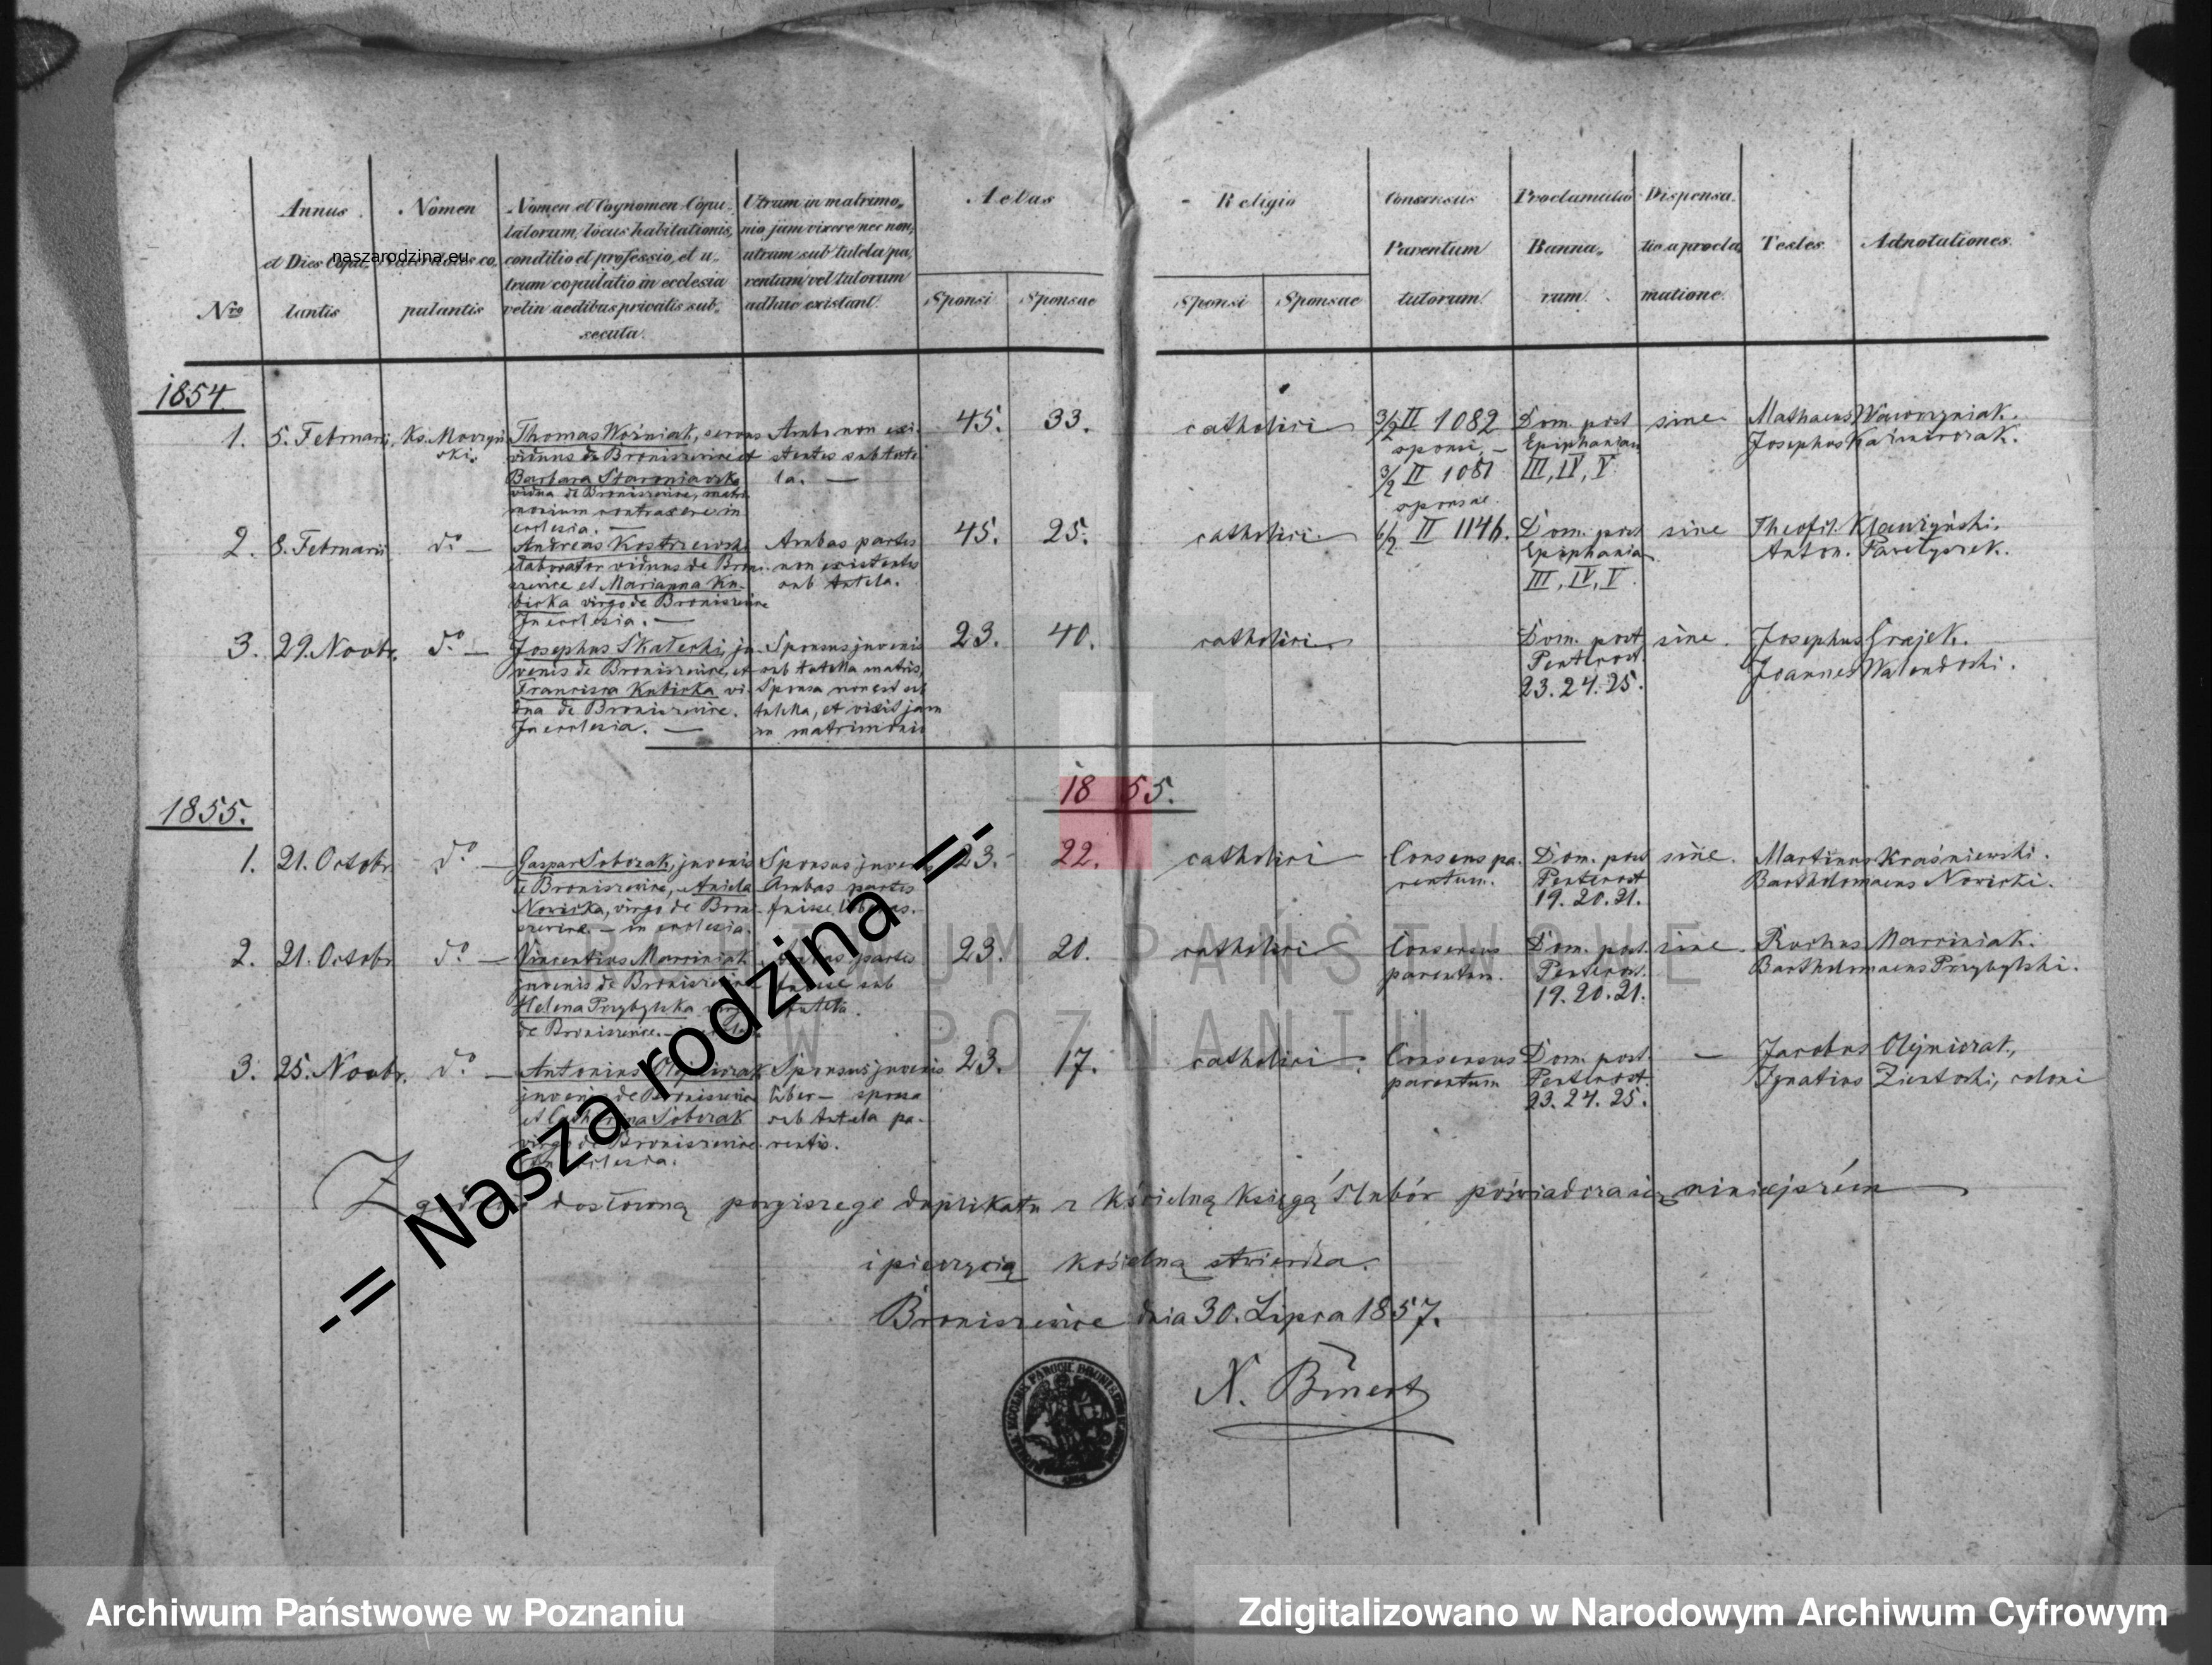 Nro
Annus et Dies Copulantis
Nomen pulantis
Nomen et Cognomen Copu-
latorum, locus habitationis,
conditio et professio, et u-
trum copulatio in ecclesia
vel in aedibus privatis sub-
secuta.
Utrum in matrimo-
nio jam vixere nec non,
utrum sub tutela pa-
rentum vel tutorum
adhuc existant.
Aetas
Sponsi Sponsae
Religio
Sponsi Sponsae
Consensus
Parentum
tutorum
Proclamatio
Banno-
rum
Dispensa-
tio a procla-
matione
Testes
Adnotationes.
naszarodzina.eu
1854
1. 5. Februarii, Ks. Morzyń
ski.
Thomas Woźniak, servus
viduus de Broniszewice et
Barbara Staroniawska
vidua de Broniszewice, matri
monium contraxere in
ecclesia. —
Ambo non exi-
stentes sub tute
la. —
45. 33.
catholici
3/2 II 1082
sponsi, –
3/2 II 1081
sponsae.
Dom. post
Epiphaniam
III, IV, V.
sine
Mathaeus Wawrzyniak.
Josephus Kaźmierczak.
2. 8. Februarii do —
Andreas Kostrzewski
elaborator viduus de Broni-
szewice et Marianna Ku-
bicka virgo de Broniszewice
In ecclesia. —
Ambas partes
non existentes
sub tutela.
45. 25.
catholici.
6/2 II 1146.
Dom. post
Epiphania
III, IV, V.
sine
Theofil. Klawzyński.
Anton. Pawełyszek.
3. 29. Novbr. do —
Josephus Skałecki, ju-
venis de Broniszewice, et
Francisca Kubicka vi-
dua de Broniszewice.
In ecclesia. —
Sponsus juvenis
sub tutella matris,
Sponsa non est sub
tutella, et vixit jam
in matrimonio
23. 40.
catholici.
Dom. post
Pentecost.
23. 24. 25.
sine.
Josephus Grajek.
Joannes Walendoski.
1855.
1855.
1. 21. Octobr. do —
Gaspar Sobczak, juvenis
de Broniszewice, et Aniela
Nowicka, virgo de Broni-
szewice. – in ecclesia.
Sponsus juvenis
Ambas partes
fuisse liberas.
23. 22.
catholici
Consens pa-
rentum.
Dom. post
Pentecost
19. 20. 21.
sine.
Martinus Kraśniewski.
Bartholomaeus Nowicki.
2. 21. Octobr. do —
Vincentius Marciniak
juvenis de Broniszewice
Helena Przybylska
de Broniszewice.
partes
fuisse sub
tutela.
23. 20.
catholici
Consensus
parentum.
Dom. post
Pentecost.
19. 20. 21.
sine.
Rochus Marciniak.
Bartholomaeus Przybylski.
3. 25. Novbr. do —
Antonius Olejniczak
juvenis de Broniszewice
et Catharina Sobczak
virgo de Broniszewice
in ecclesia.
Sponsus juvenis
liber – sponsa
sub tutela pa-
rentis.
23. 17.
catholici.
Consensus
parentum
Dom. post
Pentecost.
23. 24. 25.
—
Jacobus Olejniczak,
Ignatius Zientoski, coloni
Zgodność dosłowną powyższego duplikatu z Kścielną Księgą Slubów poświadcza się niniejszém
i pieczęcią kościelną stwierdza.
Broniszewice dnia 30. Lipca 1857.
X. Binert
ARCHIWUM PAŃSTWOWE
W POZNANIU
-= Nasza rodzina =-
Archiwum Państwowe w Poznaniu
Zdigitalizowano w Narodowym Archiwum Cyfrowym